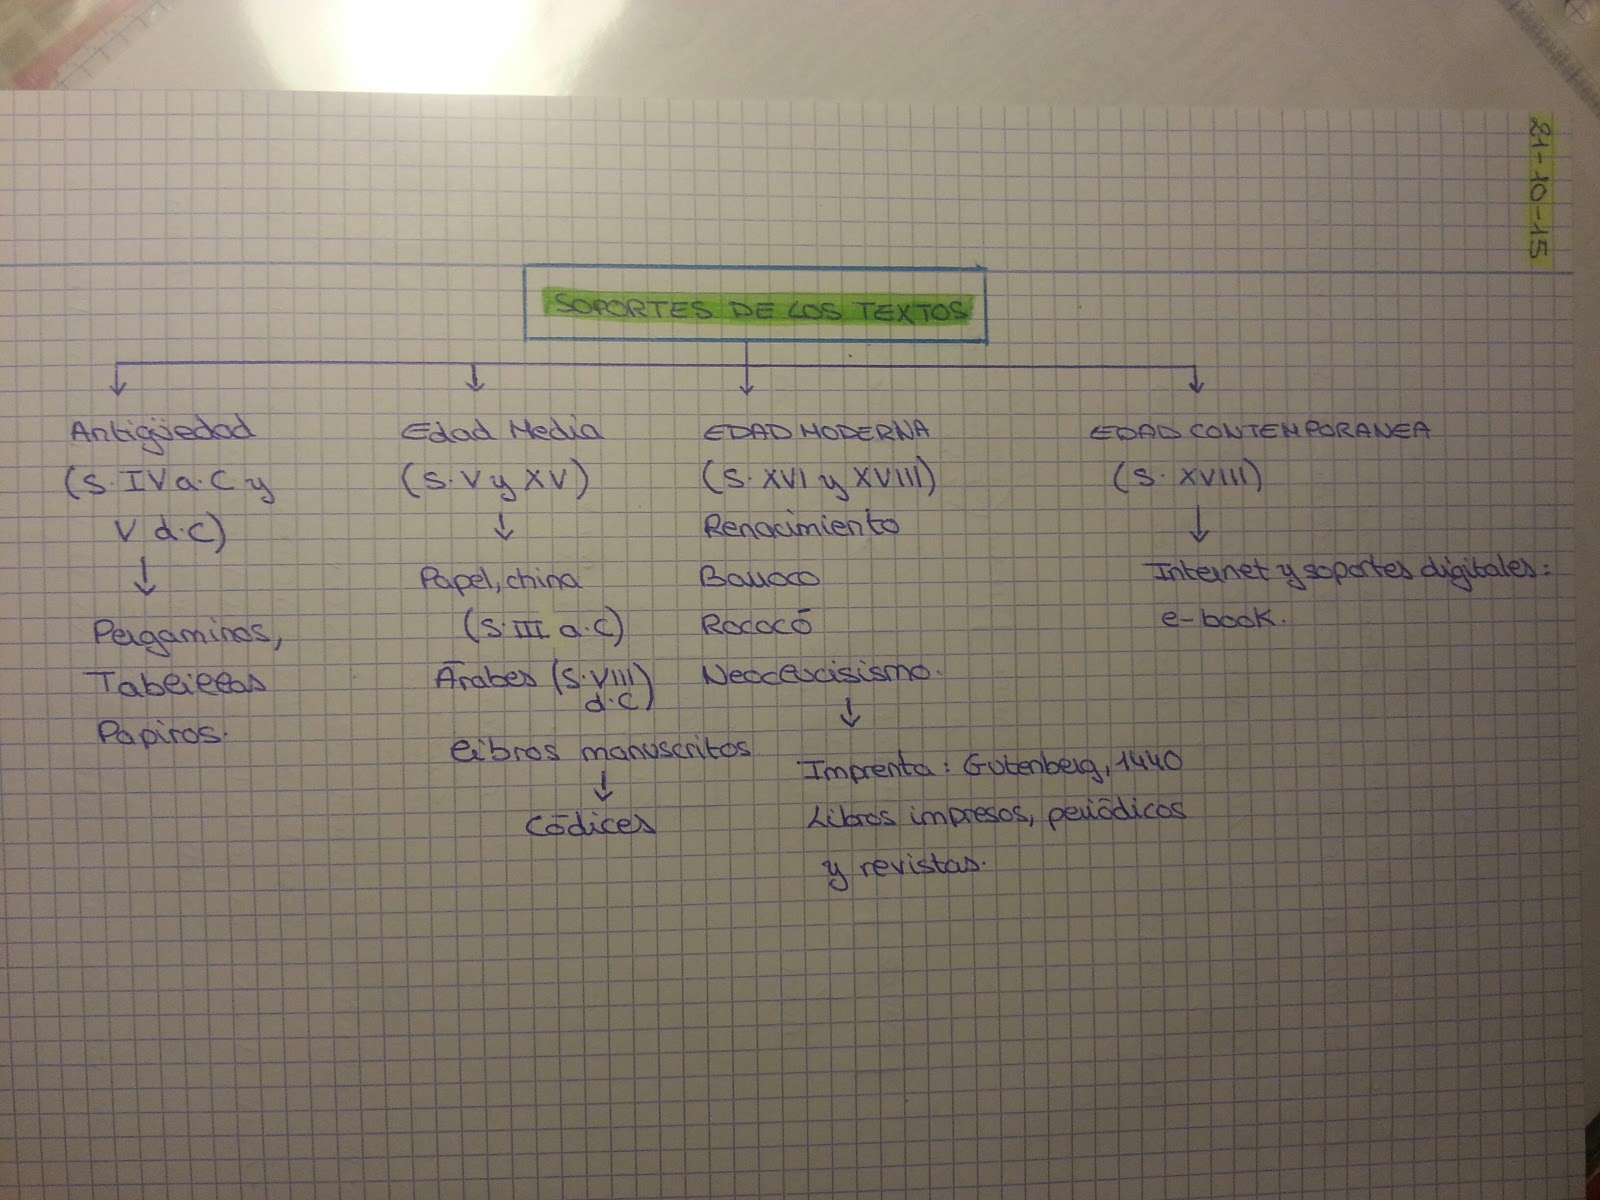 21-10-15
SOPORTES DE LOS TEXTOS
Antigüedad
(S. IV a.C y
V d.C)
Pergaminos,
Tablillas
Papiros.
Edad Media
(S. V y XV)
Papel, china
(S. III a.C)
Árabes (S. VIII
d.C)
libros manuscritos
Códices
EDAD MODERNA
(S. XVI y XVIII)
Renacimiento
Barroco
Rococó
Neoclasisismo.
Imprenta: Gutenberg, 1440
Libros impresos, periódicos
y revistas.
EDAD CONTEMPORANEA
(S. XVIII)
Internet y soportes digitales:
e-book.